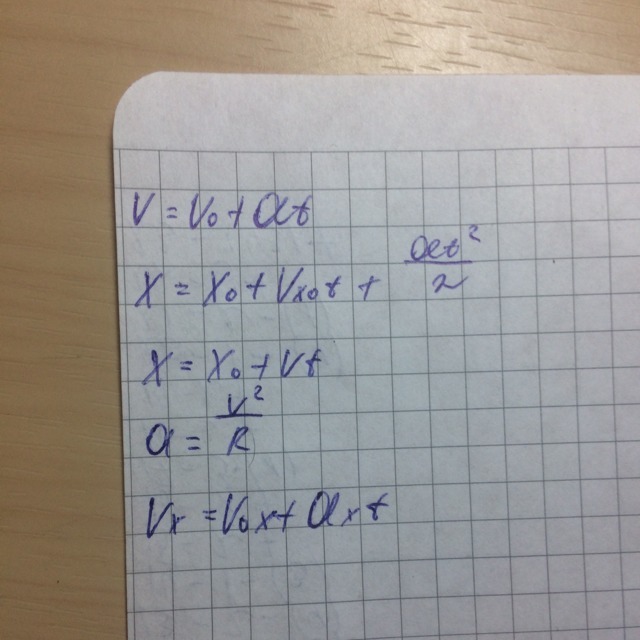 V = V₀ + at
X = X₀ + Vₓ₀t + at²/2
X = X₀ + Vt
a = V²/R
Vₓ = V₀ₓ + aₓt